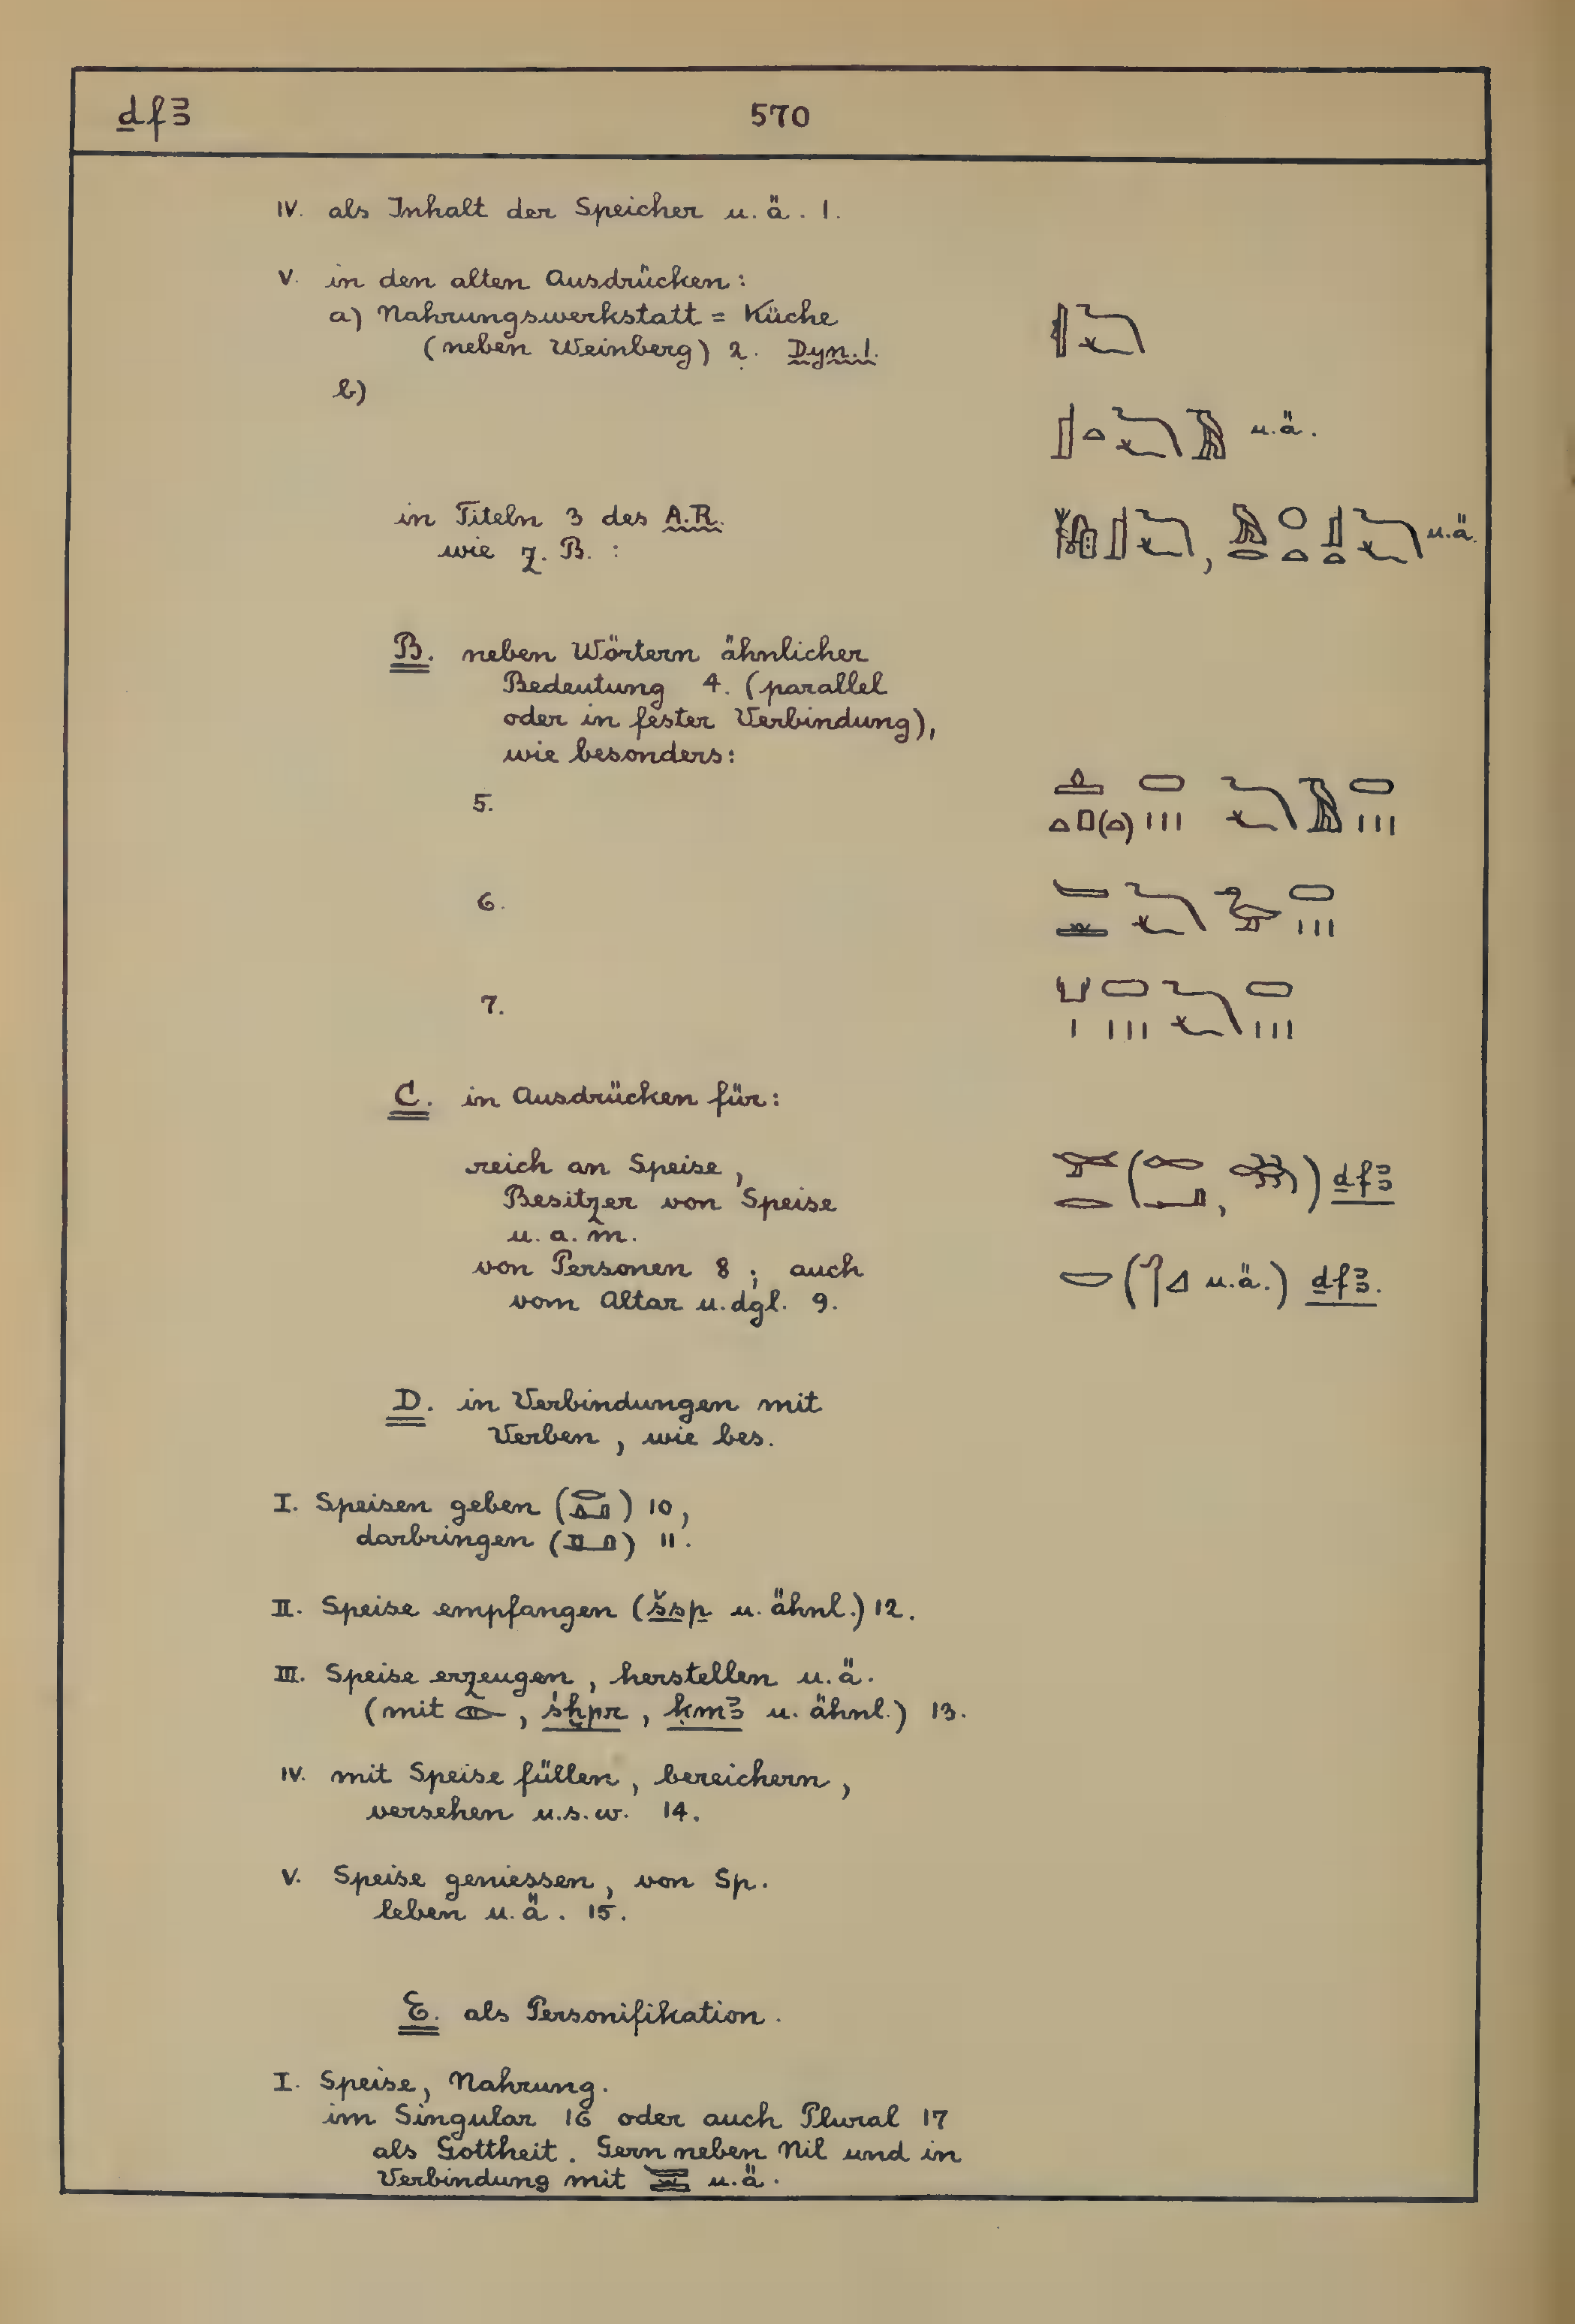 ḏfꜣ 570
IV. als Inhalt der Speicher u. ä. 1.
V. in den alten Ausdrücken:
a) Nahrungswerkstatt = Küche
(neben Weinberg) 2. Dyn. 1.
b)
u. ä.
in Titeln 3 des A.R.
wie z. B. : , u. ä.
B. neben Wörtern ähnlicher
Bedeutung 4. (parallel
oder in fester Verbindung),
wie besonders:
5.
6.
7.
C. in Ausdrücken für:
reich an Speise, ( , ) ḏfꜣ
Besitzer von Speise
u. a. m.
von Personen 8 ; auch ( u. ä.) ḏfꜣ.
vom Altar u. dgl. 9.
D. in Verbindungen mit
Verben, wie bes.
I. Speisen geben ( ) 10,
darbringen ( ) 11.
II. Speise empfangen (šsp u. ähnl.) 12.
III. Speise erzeugen, herstellen u. ä.
(mit , śḫpr, ḳmꜣ u. ähnl.) 13.
IV. mit Speise füllen, bereichern,
versehen u.s.w. 14.
V. Speise geniessen, von Sp.
leben u. ä. 15.
E. als Personifikation.
I. Speise, Nahrung.
im Singular 16 oder auch Plural 17
als Gottheit. Gern neben Nil und in
Verbindung mit u. ä.